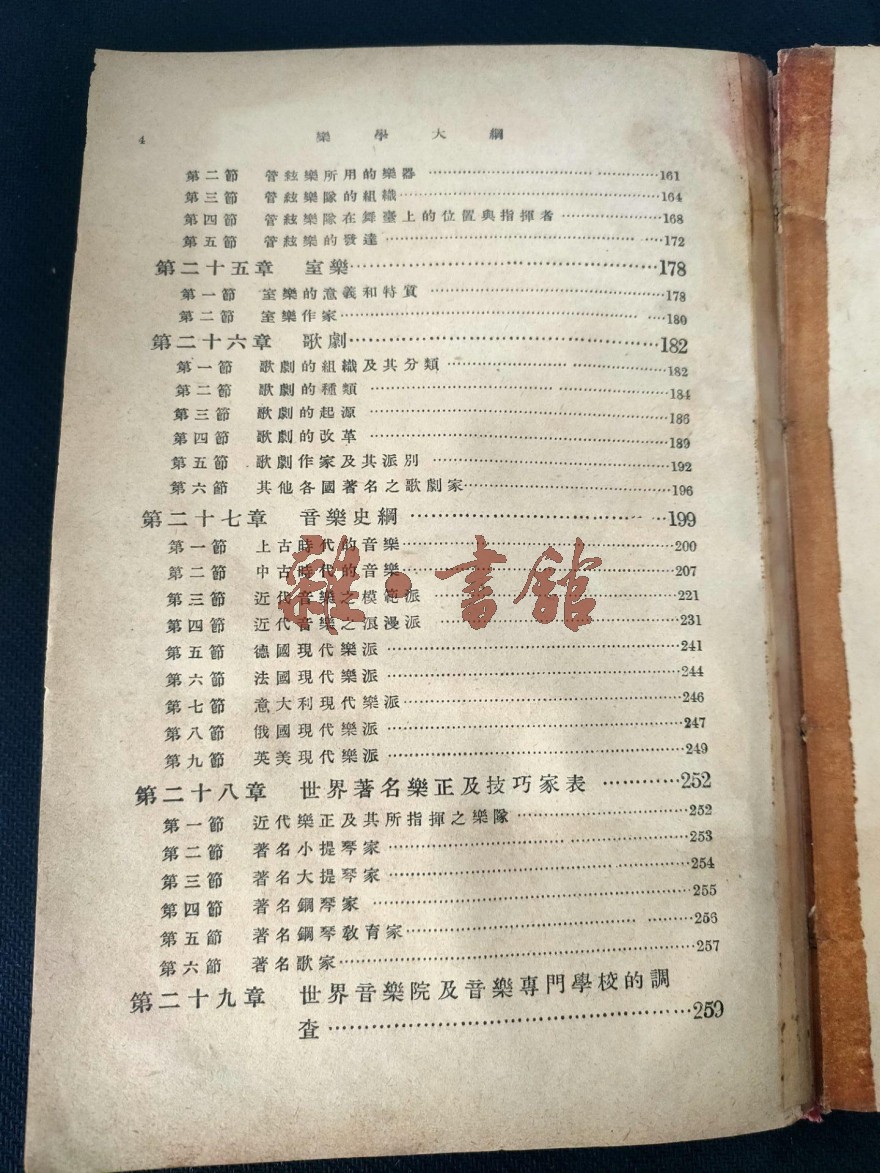 4 樂學大綱
第二節 管絃樂所用的樂器……161
第三節 管絃樂隊的組織……164
第四節 管絃樂隊在舞臺上的位置與指揮者……168
第五節 管絃樂的發達……172
第二十五章 室樂……178
第一節 室樂的意義和特質……178
第二節 室樂作家……180
第二十六章 歌劇……182
第一節 歌劇的組織及其分類……182
第二節 歌劇的種類……184
第三節 歌劇的起源……186
第四節 歌劇的改革……189
第五節 歌劇作家及其派別……192
第六節 其他各國著名之歌劇家……196
第二十七章 音樂史綱……199
第一節 上古時代的音樂……200
第二節 中古時代的音樂……207
第三節 近代音樂之模範派……221
第四節 近代音樂之浪漫派……231
第五節 德國現代樂派……241
第六節 法國現代樂派……244
第七節 意大利現代樂派……246
第八節 俄國現代樂派……247
第九節 英美現代樂派……249
第二十八章 世界著名樂正及技巧家表……252
第一節 近代樂正及其所指揮之樂隊……252
第二節 著名小提琴家……253
第三節 著名大提琴家……254
第四節 著名鋼琴家……255
第五節 著名鋼琴敎育家……256
第六節 著名歌家……257
第二十九章 世界音樂院及音樂專門學校的調
查……259
雜·書館